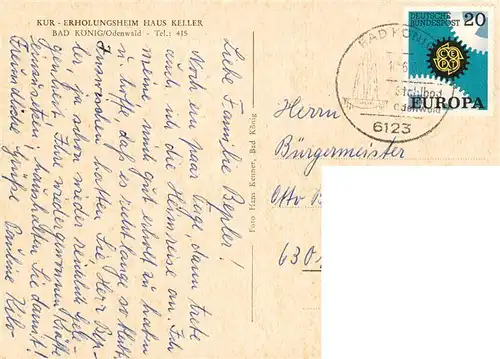 KUR - ERHOLUNGSHEIM HAUS KELLER
BAD KÖNIG/Odenwald - Tel.: 415
Liebe Familie Bepler!
Noch ein paar Tage, dann trete
auch ich die Heimreise an. Ich
meine mich gut erholt zu haben
u. hoffe, daß es recht lange so bleibt.
Inzwischen hatten Sie, Herr Bep-
ler ja schon wieder reichlich Gele-
genheit, Ihre wiedergewonnen Kräfte
einzusetzen; haushalten Sie damit!
Freundliche Grüße Pauline
Foto Hans Kenner, Bad König
DEUTSCHE BUNDESPOST
20
CEPT
EUROPA
BAD KÖNIG
Stahlbad
Odenwald
6123
Herrn
Bürgermeister
Otto B
630